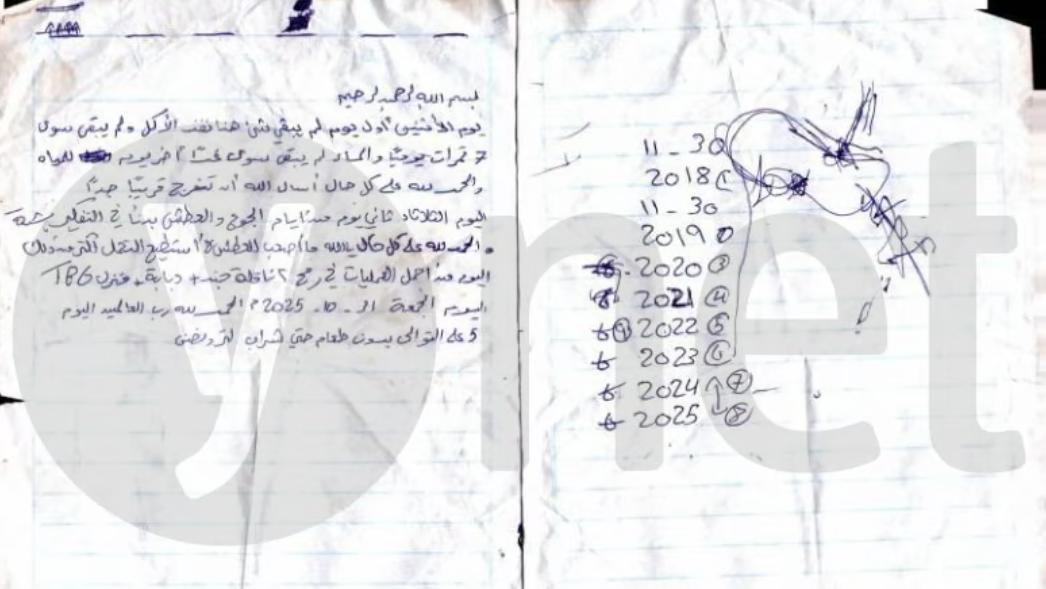 بسم الله الرحمن الرحيم
يوم الأثنين أول يوم لم يبقى شئ هنا نفذ الأكل ولم يبقى سوى
7 تمرات يوميًا والماء لم يبقى سوى آخر يوم للمياه
والحمد لله على كل حال أسأل الله أن تفرج قريبًا جدًا
اليوم الثلاثاء ثاني يوم من أيام الجوع والعطش بدأنا في التفكير
والحمد لله على كل حال يا الله ما أصعب العطش لا أستطيع التحمل أكثر من ذلك
اليوم من أجمل العمليات في رفح ٢ ناقلة جند + دبابة + TBG
اليوم الجمعة 31 - 10 - 2025 م الحمد لله رب العالمين اليوم
5 على التوالي بدون طعام حتى شراب
11 - 30
2018 ①
11 - 30
2019
6 - 2020 ③
6 - 2021 ④
6 2022 ⑤
6 - 2023 ⑥
6 - 2024 ⑦
6 - 2025 ⑧
ynet